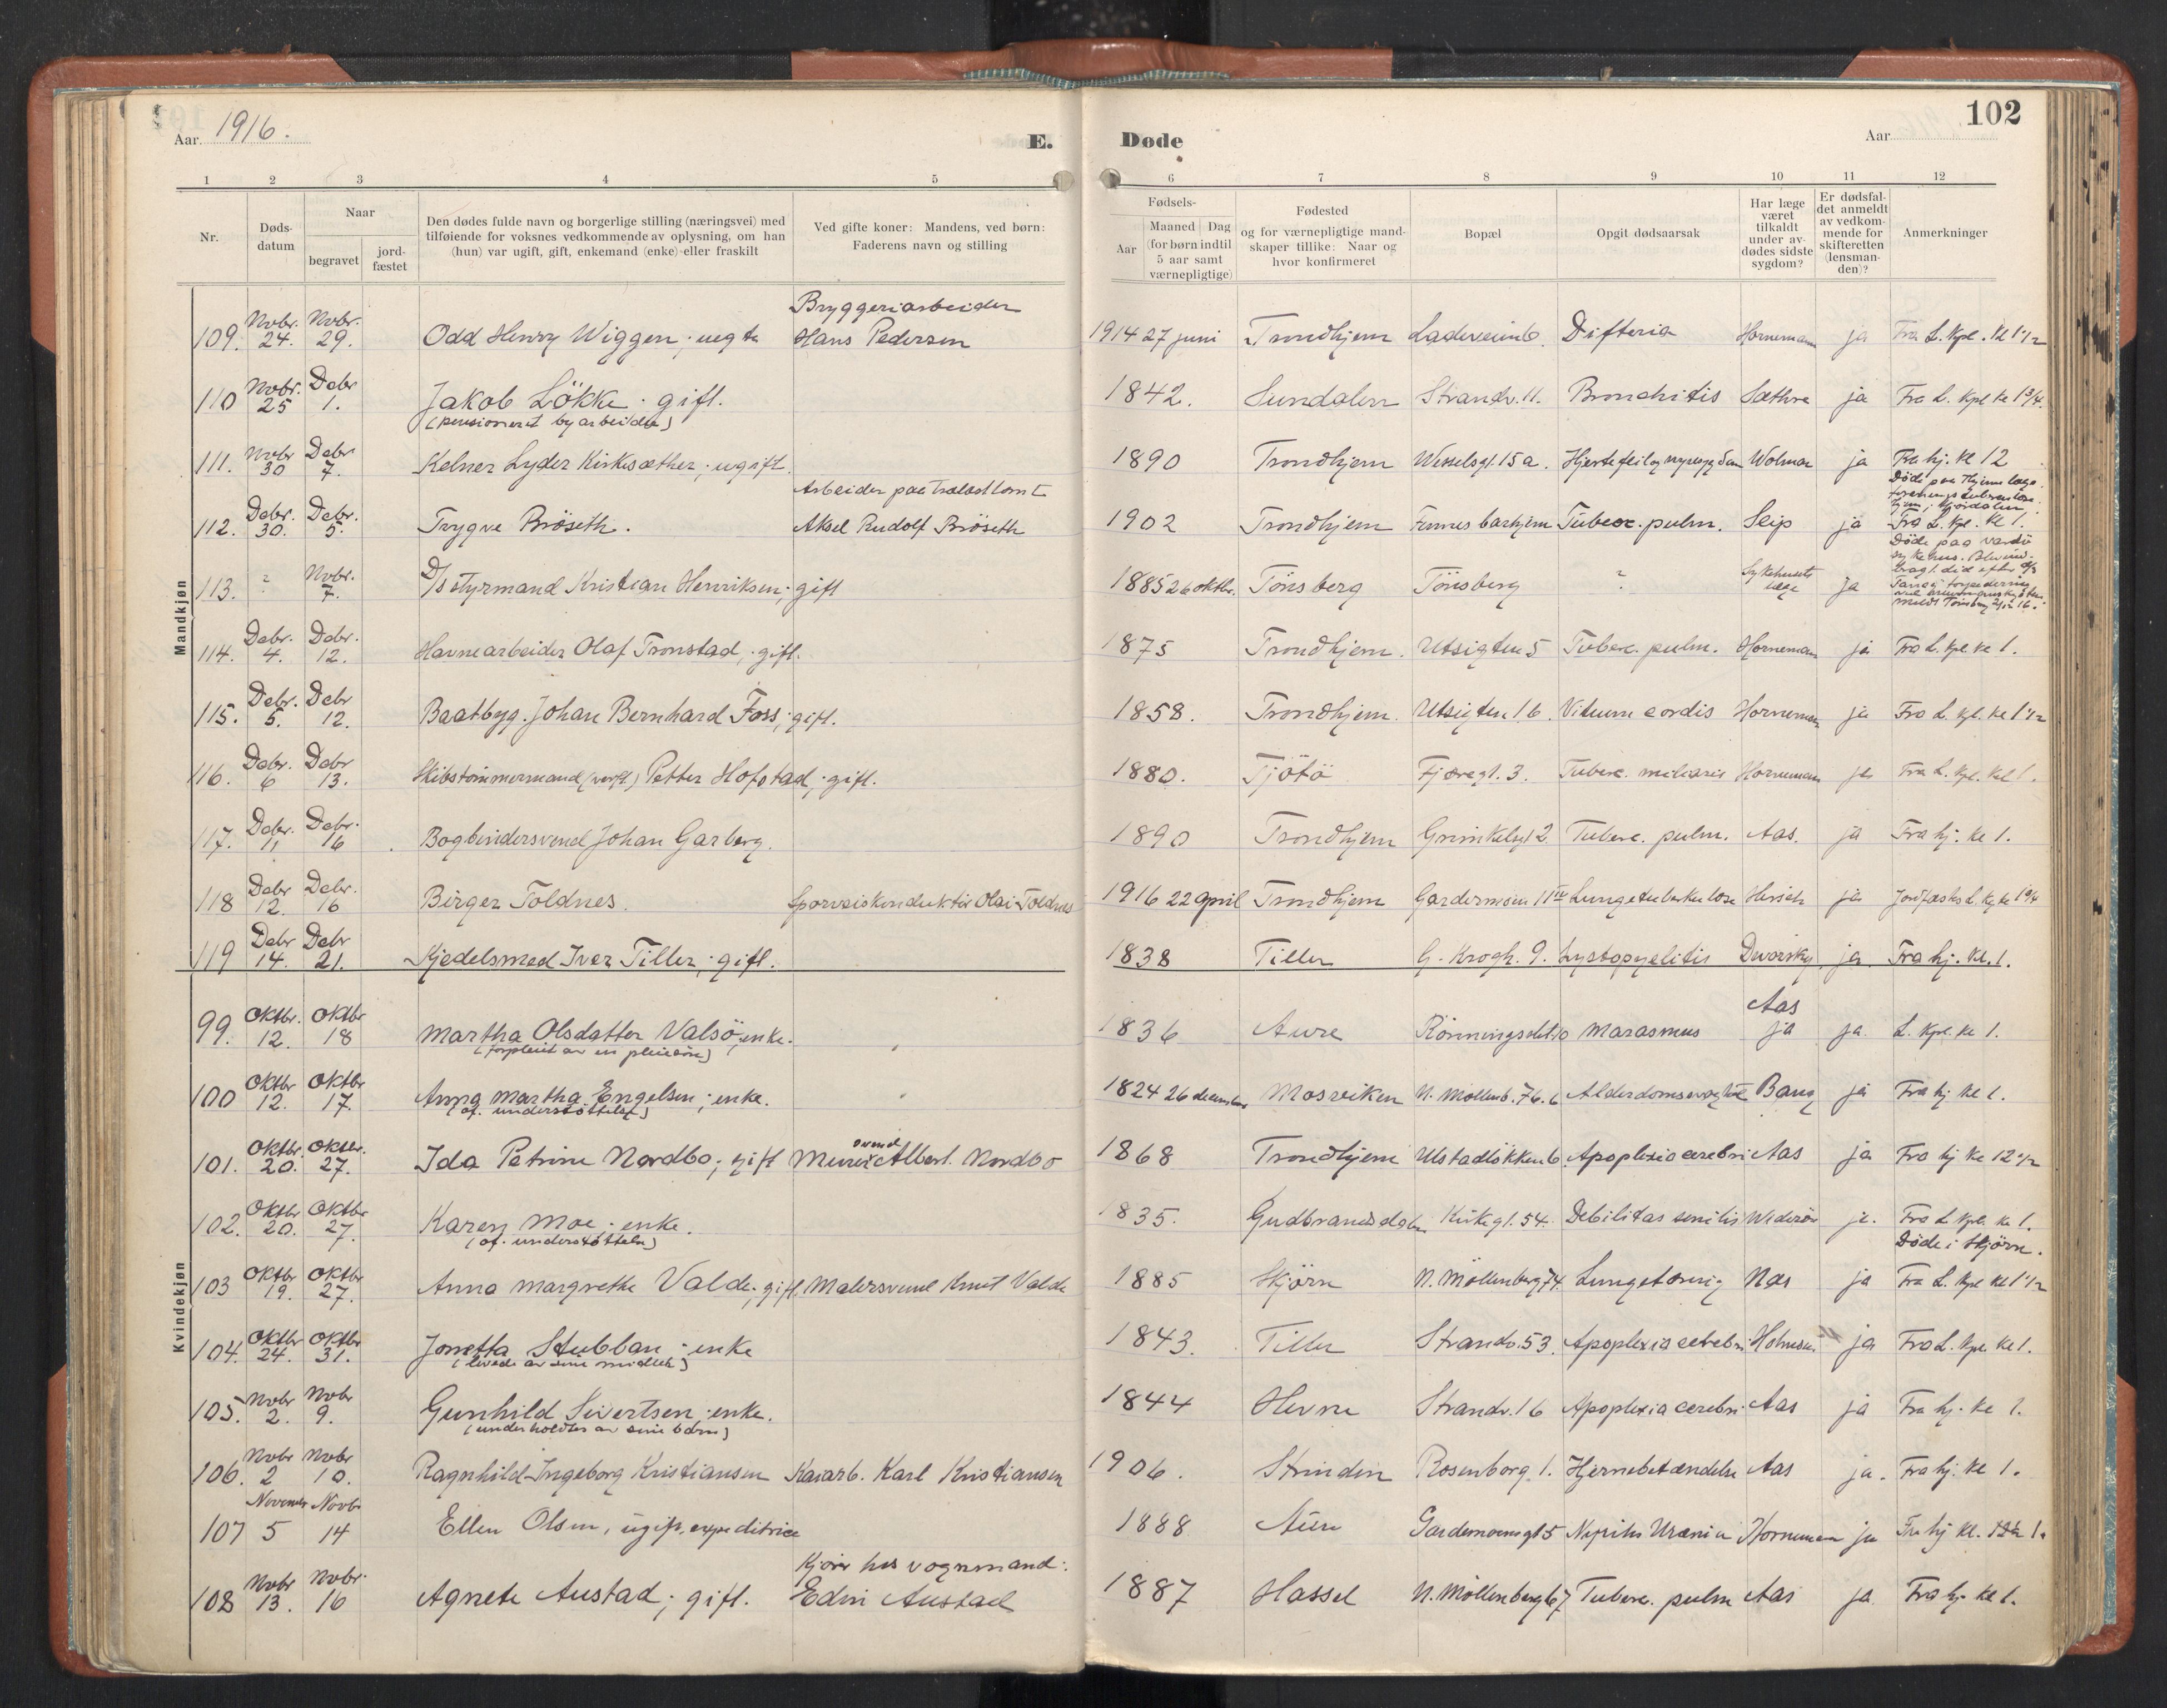 Aar. 1916.
E.
Døde
Aar
102
1 2 3 4 5 6 7 8 9 10 11 12
Nr.
Døds-
datum
Naar
begravet
jord-
fæstet
Den dødes fulde navn og borgerlige stilling (næringsvei) med
tilføiende for voksnes vedkommende av oplysning, om han
(hun) var ugift, gift, enkemand (enke) eller fraskilt
Ved gifte koner: Mandens, ved børn:
Faderens navn og stilling
Fødsels-
Aar
Maaned Dag
(for børn indtil
5 aar samt
værnepligtige)
Fødested
og for værnepligtige mand-
skaper tillike: Naar og
hvor konfirmeret
Bopæl
Opgit dødsaarsak
Har læge
været
tilkaldt
under av-
dødes sidste
sygdom?
Er dødsfal-
det anmeldt
av vedkom-
mende for
skifteretten
(lensman-
den)?
Anmerkninger
Mandkjøn
Bryggeriarbeider
109. Novbr. 24. Novbr. 29. Odd Henry Wiggen; uegte Hans Pedersen 1914 27 juni Trondhjem Ladeveien 6. Difteria Horneman ja Fra L. Kpl. Kl 1 1/2
110 Novbr. 25 Debr 1. Jakob Lökke; gift. 1842. Sundalen Strandv. 11. Bronchitis Sæthre ja Fra L. Kpl Kl 1 3/4.
(pensioneret byarbeider)
111. Novbr 30 Debr 7. Kelner Lyder Kirkesæther; ugift. 1890 Trondhjem Wesselsgt. 15a. Hjertefeil og nyresygdom Wolmar ja Fra hj. Kl 12
Arbeider paa Trælasttomt
Døde paa Hjemme læge
112. Debr. 30. Debr. 5. Trygve Bröseth. Aksel Rudolf Bröseth 1902 Trondhjem Tuberc. pulm. Seip ja Fra L. Kpl. Kl 1.
Døde paa Vardö
sykehus.
113. ? Novbr. 7. D/s styrmand Kristian Henriksen; gift 1885 26 oktbr. Tönsberg Tönsberg ? Sykehusets læge ja
114. Debr. 4. Debr. 12. Havnearbeider Olaf Tronstad; gift. 1875 Trondhjem. Utsigten 5 Tuberc. pulm. Horneman ja Fra L. Kpl Kl 1.
115. Debr. 5. Debr 12. Baatbyg. Johan Bernhard Foss; gift. 1858. Trondhjem. Utsigten 16. Vitium cordis Horneman ja Fra L. Kpl. Kl 1 1/2
116. Debr. 6 Debr 13. Skibstömmermand (verft) Petter Hofstad; gift. 1880. Tjötö Fjæregt. 3. Tuberc. miliaris Horneman ja Fra L. Kpl. Kl 1.
117. Debr. 11 Debr. 16 Bogbindersvend Johan Garberg. 1890 Trondhjem Grinikelsgt 2. Tuberc. pulm. Aas. ja Fra hj. Kl 1.
118 Debr 12. Debr. 16 Birger Toldnes. Sporveiskonduktör Olai Toldnes 1916 22 april Trondhjem Gardermoen 11 IV Lungetuberkulose Hirsch ja
119 Debr 14. Debr 21. Kjedelsmed Iver Tiller; gift. 1838 Tiller G. Krogh. 9. Cystopyelitis Dworsky ja. Fra hj. Kl. 1.
Kvindekjøn
99. Oktbr. 12. Oktbr 18 Martha Olsdatter Valsö; enke. 1836 Aure Marasmus Aas ja ja. L. Kpl. Kl 1.
(forpleiet av en pleiesön)
100 Oktbr 12. Oktbr 17. Anna Martha Engelsen; enke. 1824 26 december Mosviken N. Möllenb. 76. b Alderdomssvaghet Bang ja Fra hj Kl 1.
(of. understöttelse)
101. Oktbr. 20. Oktbr. 27. Ida Petrine Nordbo; gift Murersvend Albert Nordbo 1868 Trondhjem Ulstadlökken 6. Apoplexia cerebri Aas ja Fra hj Kl 12 1/2
102. Oktbr 20. Oktbr 27. Karen Moe; enke. 1835. Gudbrandsdalen Kirkegt. 54. Debilitas senilis Wideröe ja. Fra L. Kpl. Kl 1.
(of. understöttelse)
Døde i Stjörn.
103 Oktbr 19. Oktbr 27. Anna Margrethe Valde; gift. Malersvend Knut Valde 1885 Stjörn N. Möllenberg 74. Lungetæring Næs ja Fra L. Kpl Kl 1 1/2
104. Oktbr 24. Oktbr 31. Jonetta Stubban; enke 1843. Tiller Strandv. 53. Apoplexia cerebri Holmsen ja Fra L. Kpl. Kl 1.
(levede av sine midler)
105. Novbr 2. Novbr 9. Gunhild Sivertsen; enke. 1844 Hevne Strandv. 16 Apoplexia cerebri Aas ja Fra hj. Kl 1.
(underholdtes av sine börn)
106. Novbr 2 Novbr 10. Ragnhild Ingeborg Kristiansen Kaiarb. Karl Kristiansen 1906. Strinden Rosenborg 1. Hjernebetændelse Aas ja. Fra hj. Kl 1.
107 November 5 Novbr 14 Ellen Olsen, ugift, expeditrice 1888 Aure Gardemoensgt 5 Nyritis Uræmia Horneman ja Fra hj Kl. 1.
Kjörer hos vognmand:
108 Novbr 13. Novbr. 16 Agnete Austad; gift. Edin Austad 1887 Hassel N. Möllenberg 67 Tuberc. pulm Aas ja Fra hj. Kl 1.